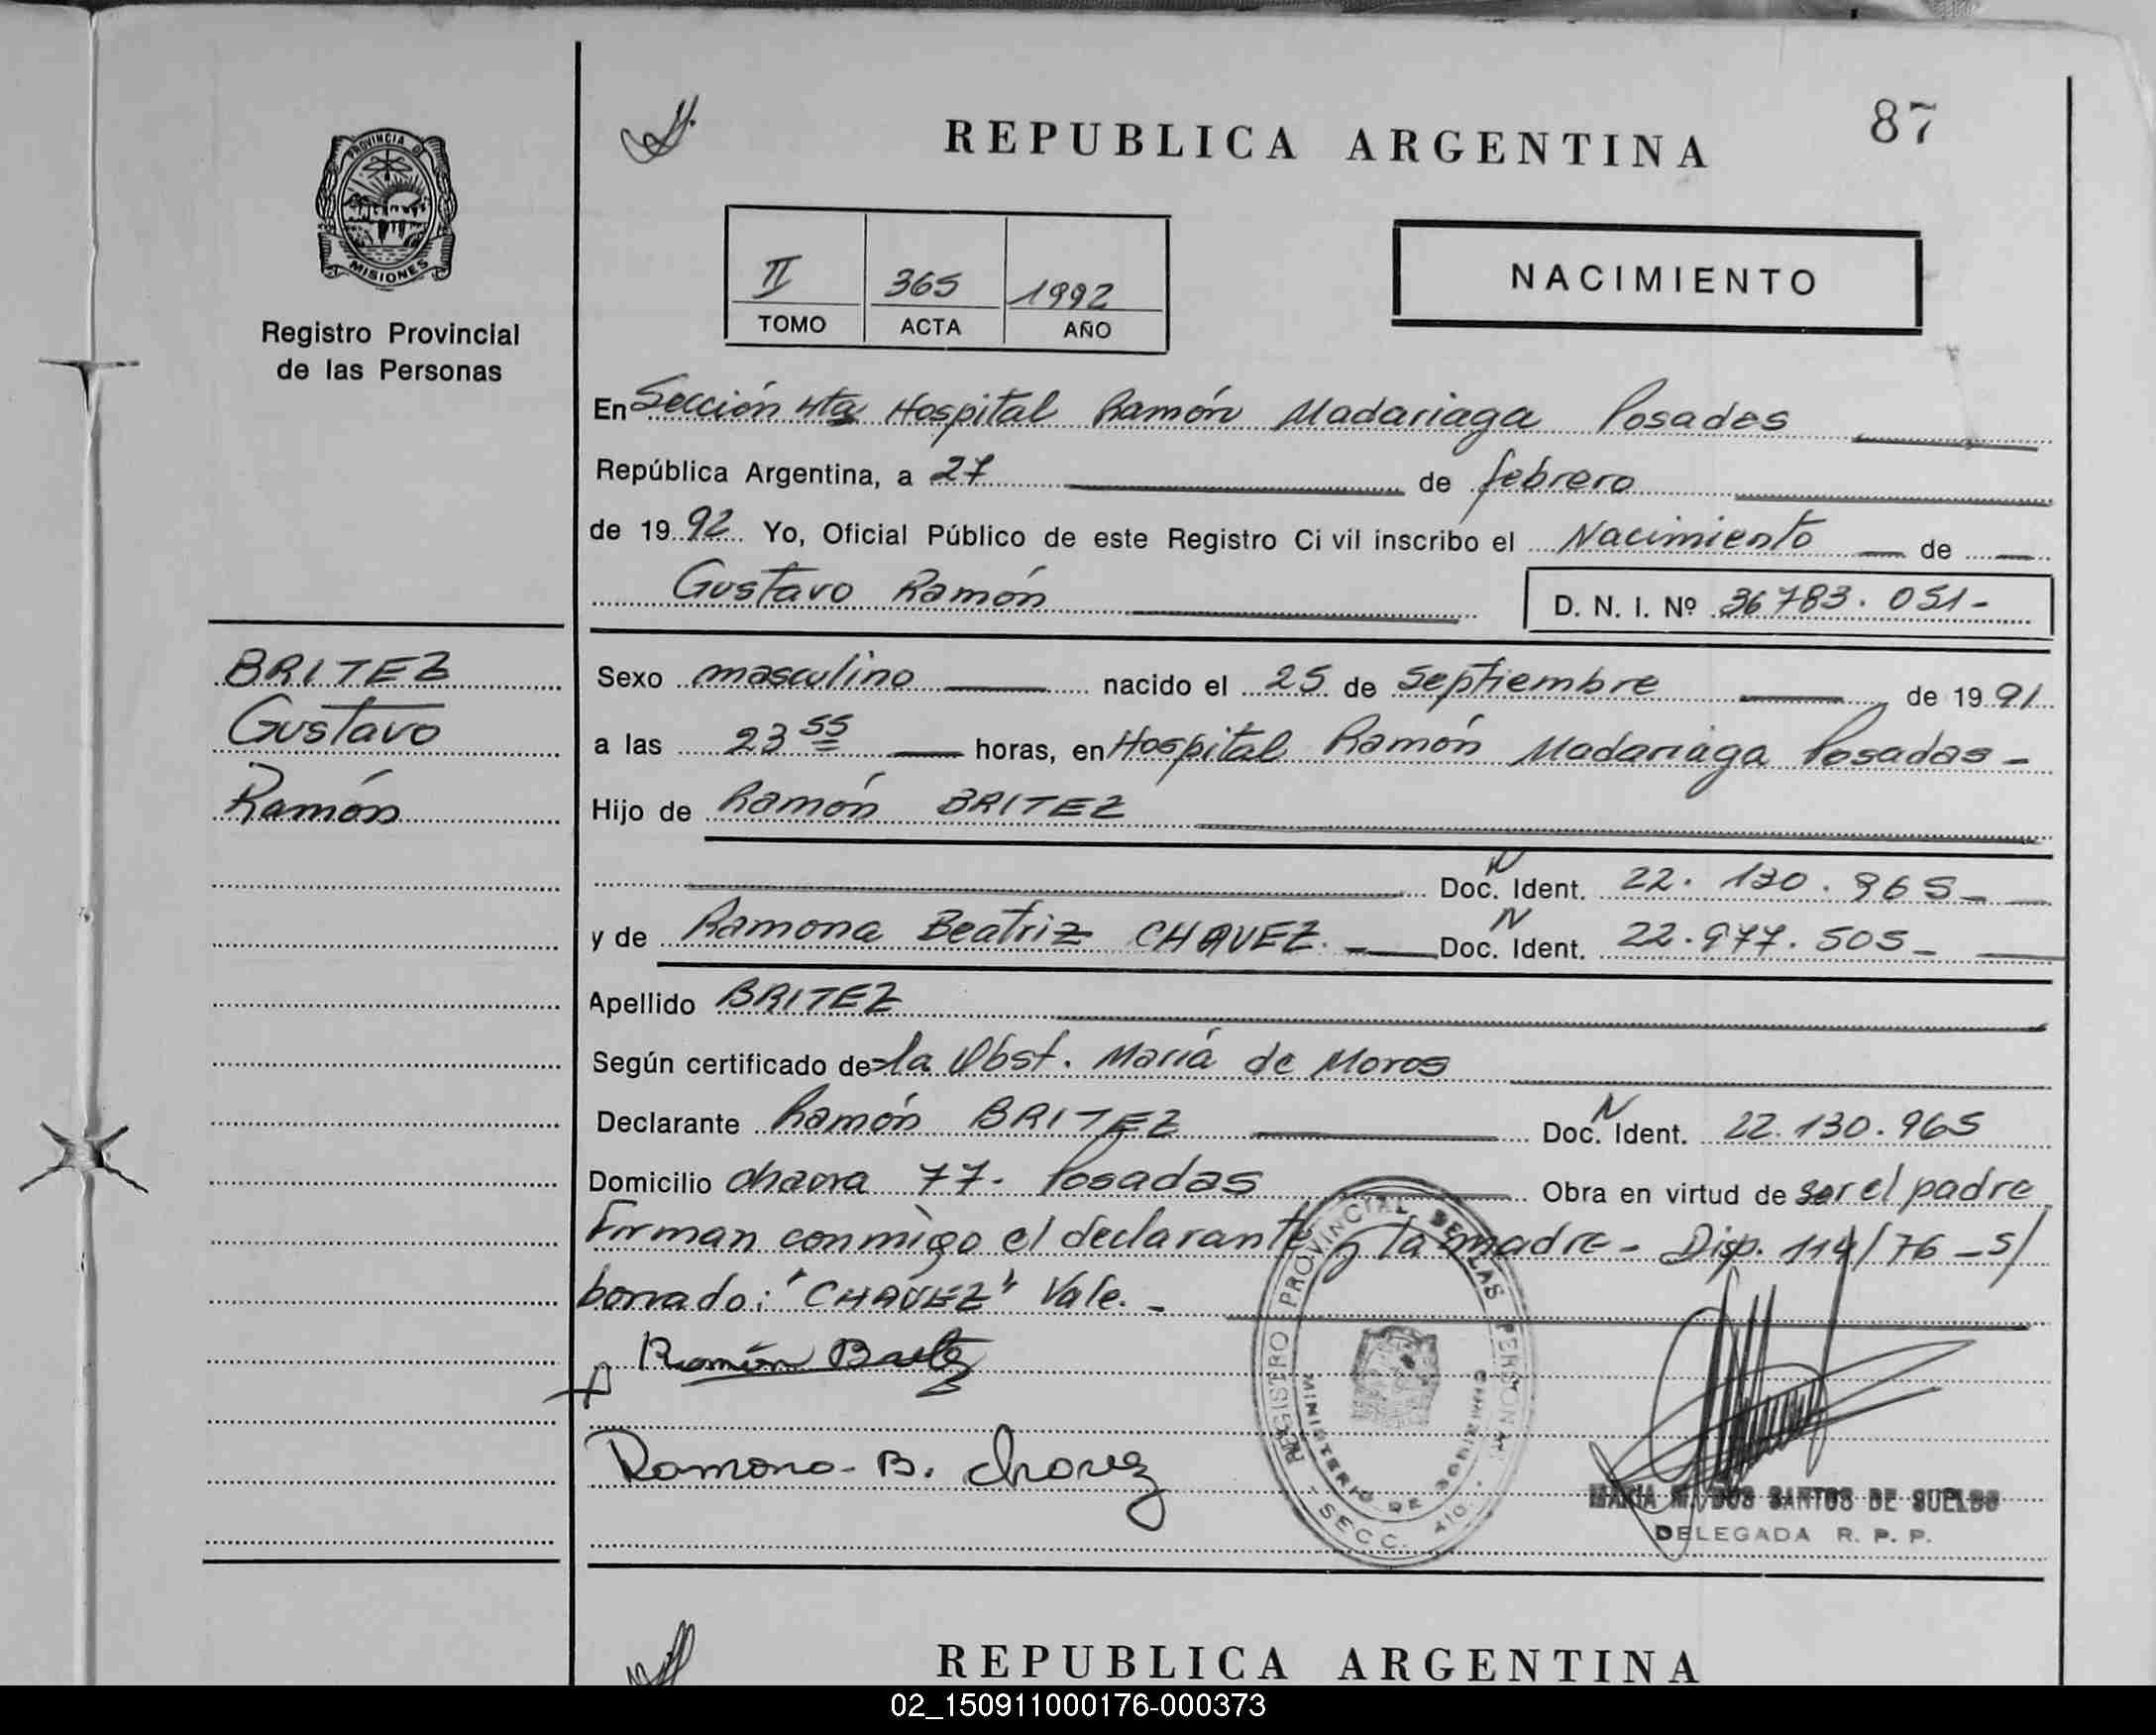 87
REPUBLICA ARGENTINA
PROVINCIA D
MISIONES
Registro Provincial
de las Personas
II 365 1992
TOMO ACTA AÑO
NACIMIENTO
En Sección 4ta Hospital Ramón Madariaga Posadas
República Argentina, a 27 de febrero
de 1992 Yo, Oficial Público de este Registro Ci vil inscribo el Nacimiento de
Gustavo Ramón D. N. I. Nº 36783.051-
BRITEZ
Gustavo
Ramón
Sexo masculino nacido el 25 de Septiembre de 1991
a las 23 55 horas, en Hospital Ramón Madariaga Posadas -
Hijo de Ramón BRITEZ
N
Doc. Ident. 22.130.965-
N
y de Ramona Beatriz CHAVEZ.- Doc. Ident. 22.977.505-
Apellido BRITEZ
Según certificado de la Obst. María de Moros
N
Declarante Ramón BRITEZ Doc. Ident. 22.130.965
Domicilio chacra 77. Posadas Obra en virtud de ser el padre
Firman conmigo el declarante y la madre - Disp. 114/76 - S/
borrado: "CHAVEZ" Vale. -
Ramón Britez
Ramona B. Chavez
REGISTRO PROVINCIAL DE LAS PERSONAS
MINISTERIO DE GOBIERNO
SECC. 4to.
MARIA M. DOS SANTOS DE SUELDO
DELEGADA R. P. P.
REPUBLICA ARGENTINA
02_150911000176-000373